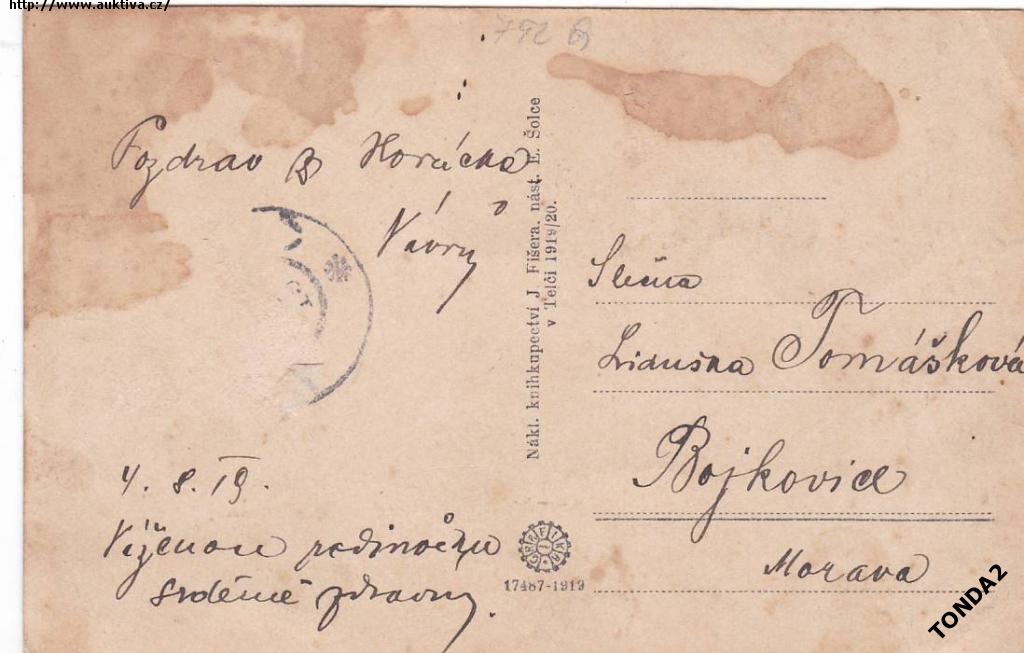 http://www.auktiva.cz/
792
Pozdrav Horácka
Vávry
4. 8. 19.
Váženou rodinočku
srdečně zdravím.
Nákl. knihkupectví J. Fišera, nást. E. Šolce
v Telči 1919/20.
GRAFIKA
17487-1919
Slečna
Liduška Tomášková
Bojkovice
Morava
TONDA2